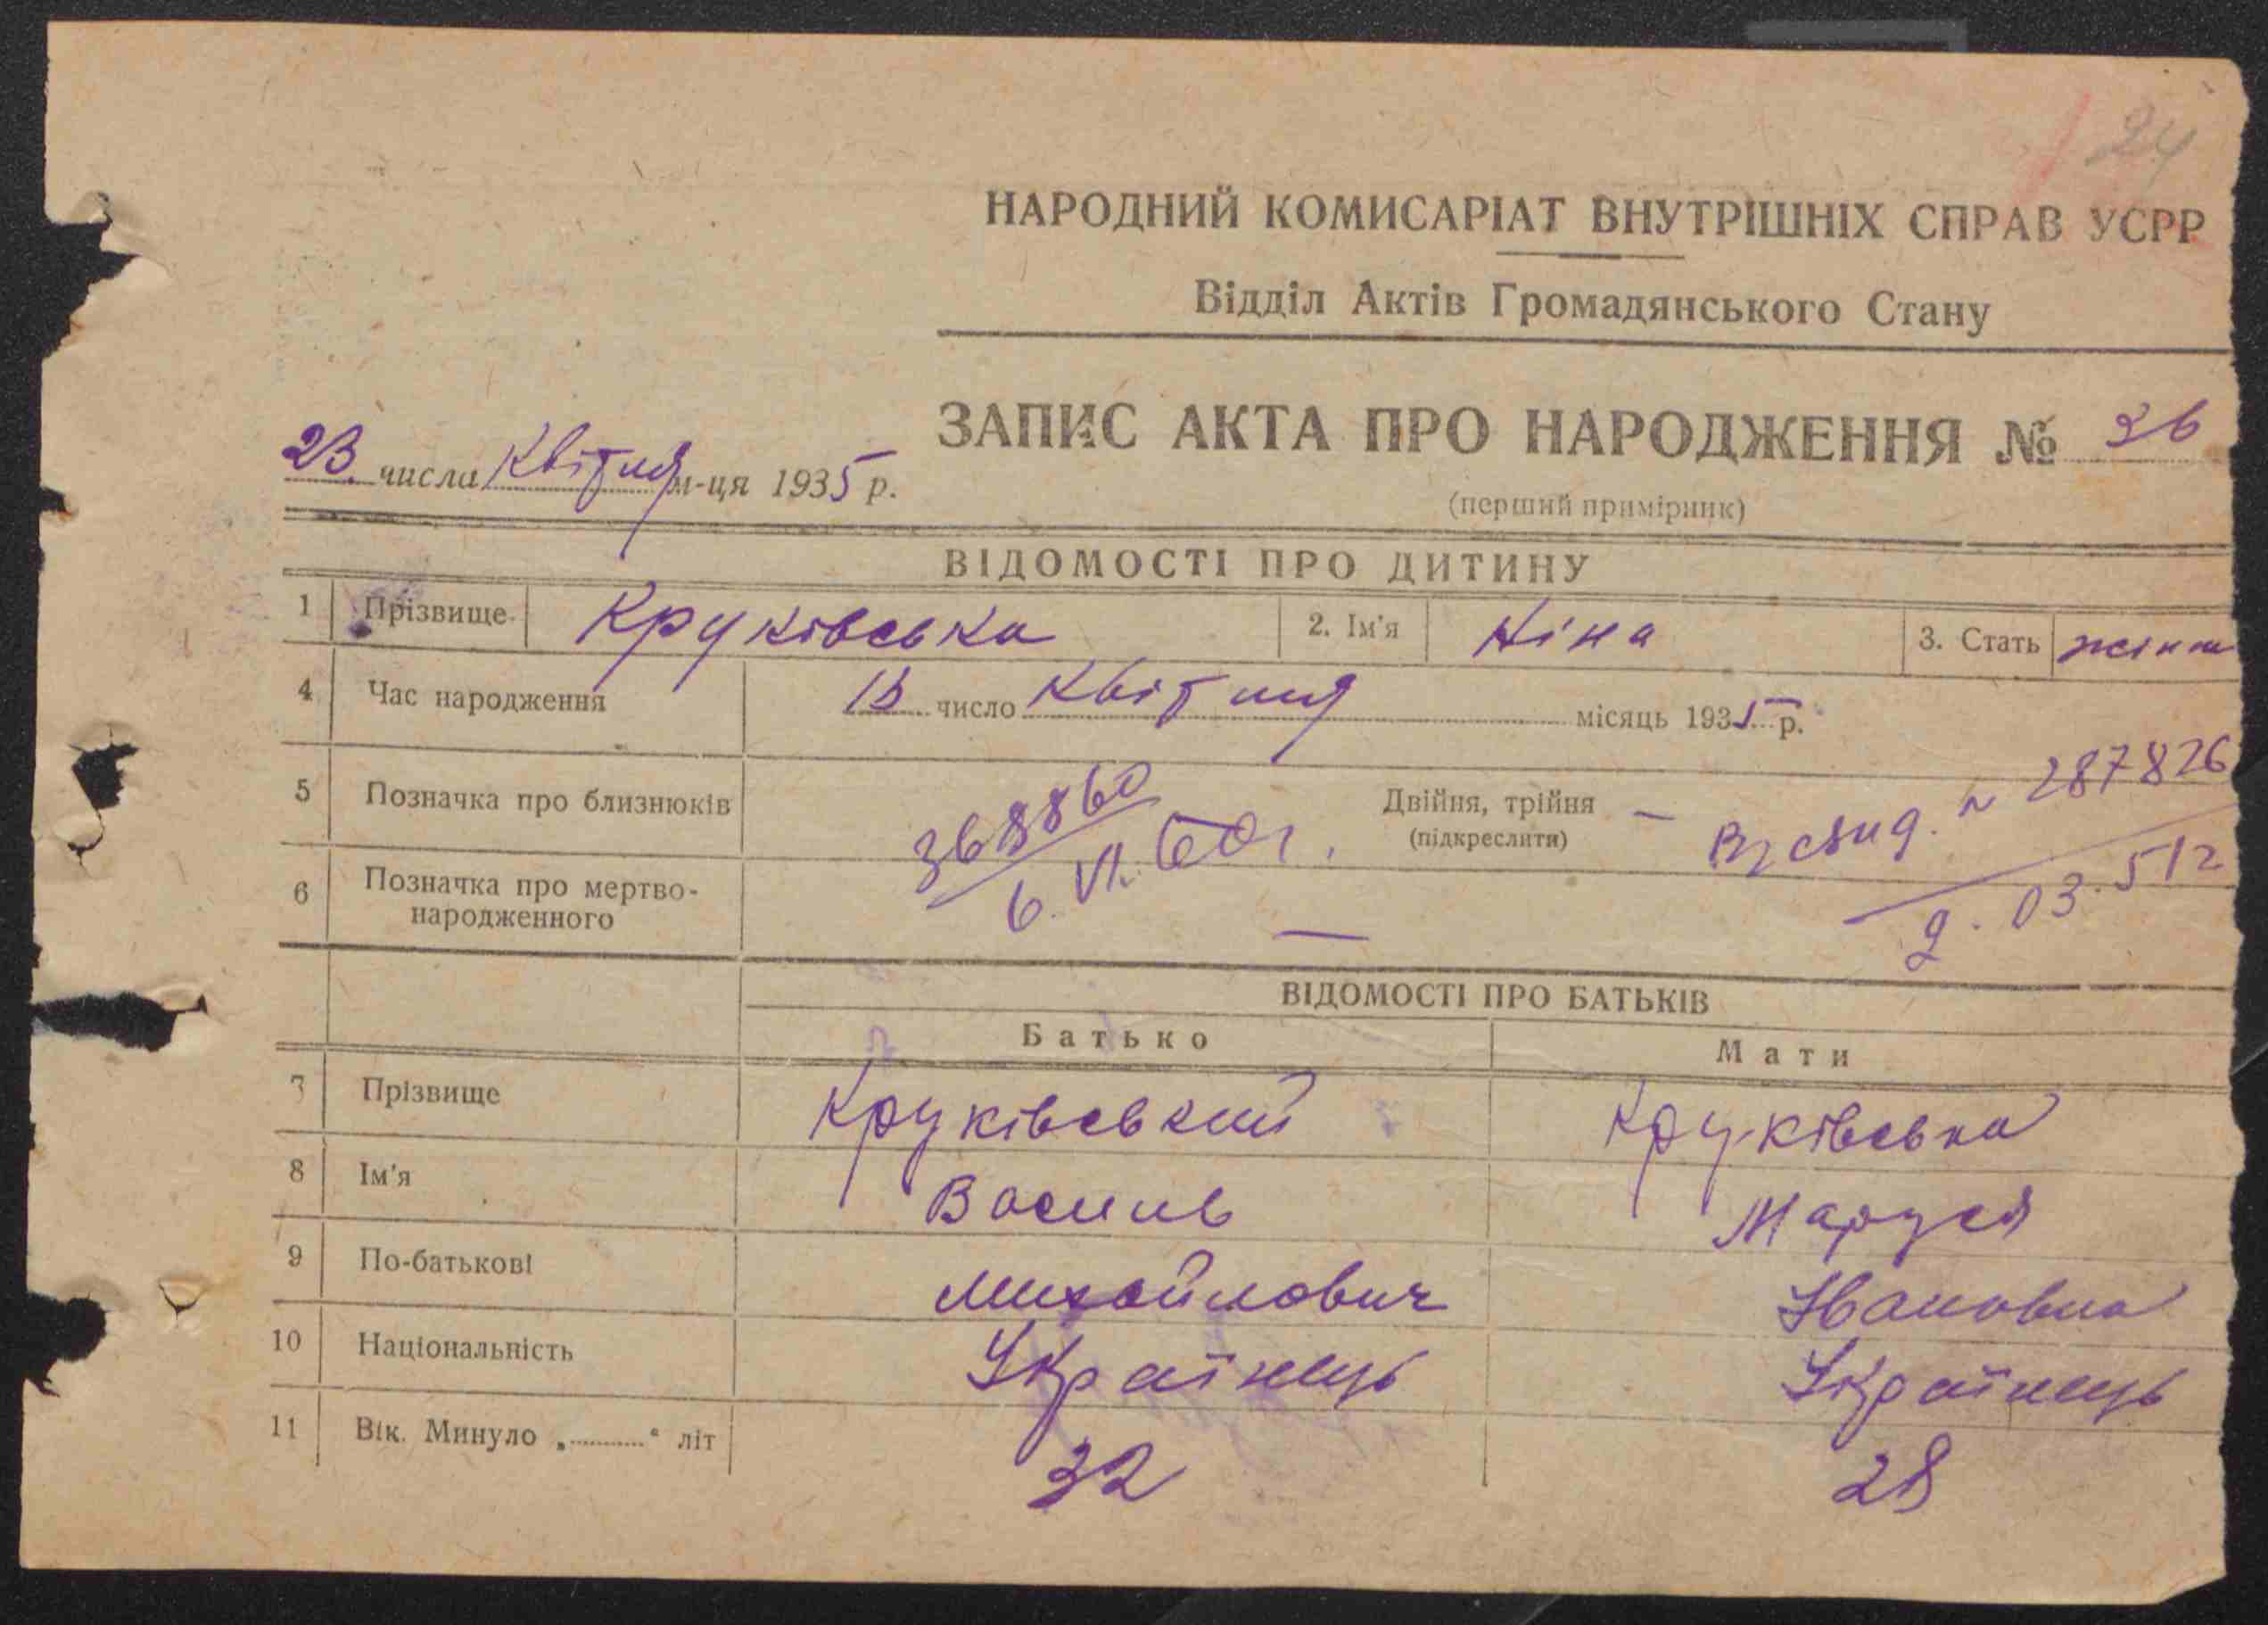 24
НАРОДНИЙ КОМИСАРІАТ ВНУТРІШНІХ СПРАВ УСРР
Відділ Актів Громадянського Стану
ЗАПИС АКТА ПРО НАРОДЖЕННЯ № 36
23 числа Квітня м-ця 1935 р.
(перший примірник)
ВІДОМОСТІ ПРО ДИТИНУ
1 Прізвище Круківська 2. Ім'я Ніна 3. Стать
4 Час народження 13 число Квітня місяць 1935 р.
5 Позначка про близнюків Двійня, трійня —
(підкреслити)
368860
6. VI. 60 г.
№ 287826
6 Позначка про мертво-
народженного —
ВІДОМОСТІ ПРО БАТЬКІВ
Батько Мати
7 Прізвище Круківський Круківська
8 Ім'я Василь Маруся
9 По-батькові Михайлович Івановна
10 Національність Українець Українець
11 Вік. Минуло „..........“ літ 32 28